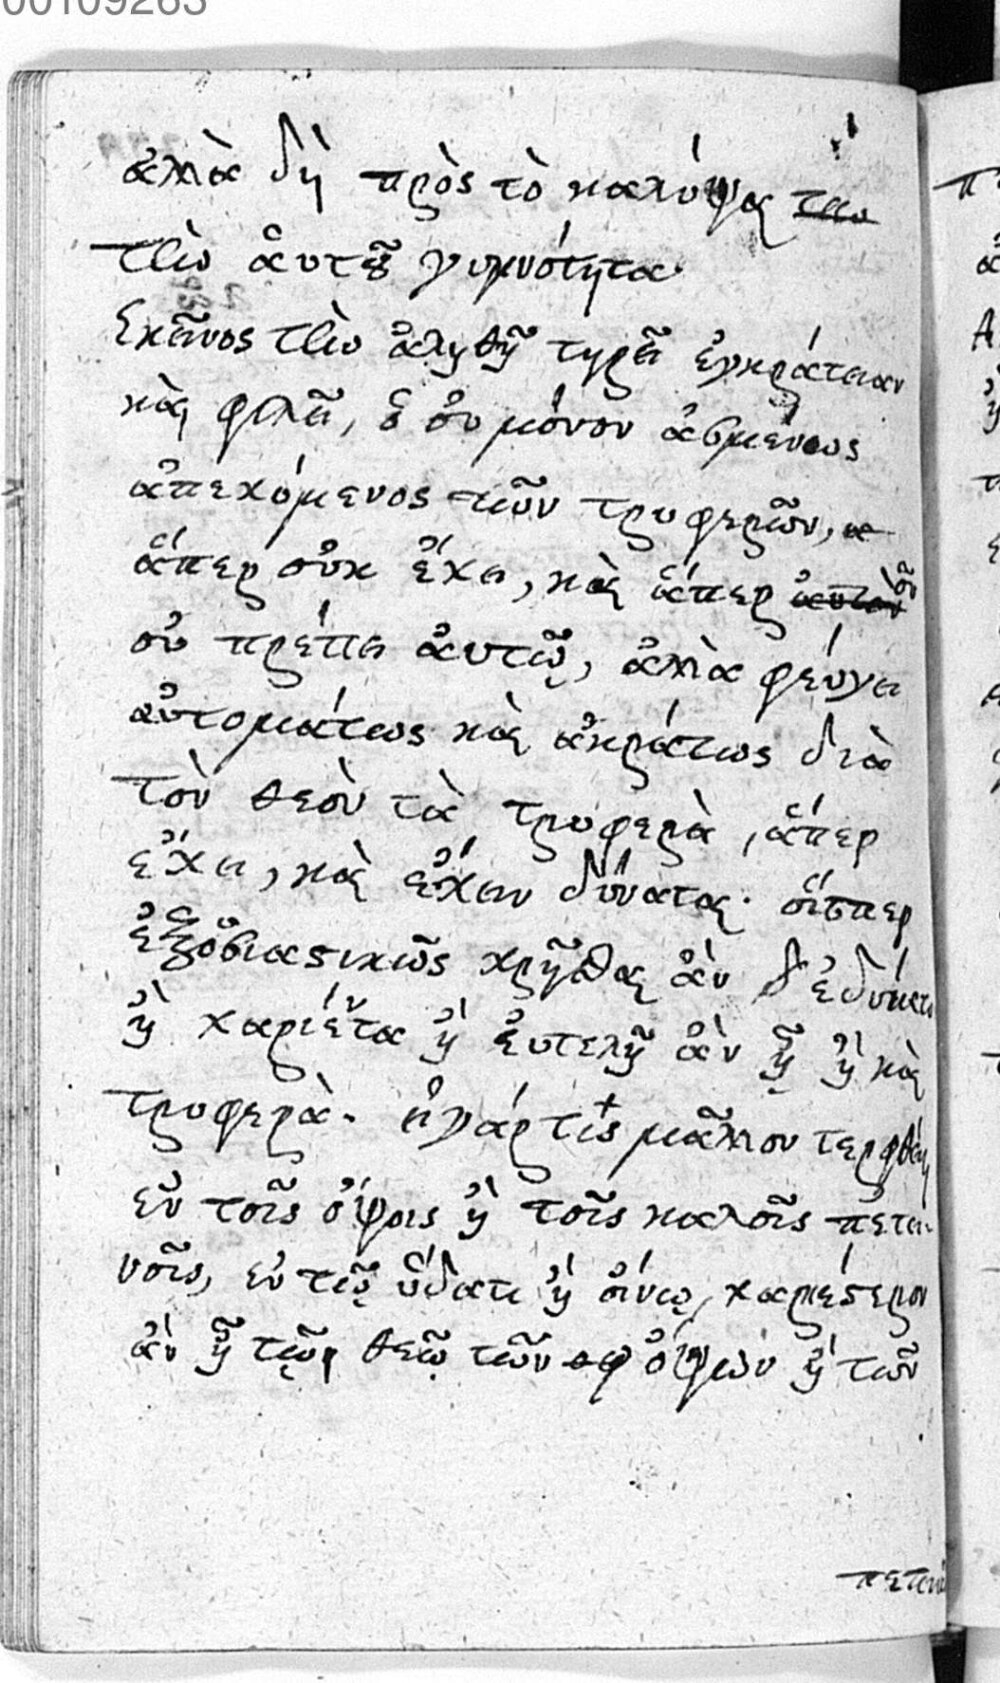 00109263
ἀλλὰ δὴ πρὸς τὸ καλύψαι τὴν
τὴν ἀυτοῦ γυμνότητα
Εκεῖνος τὴν ἀληθῆ τηρεῖ ἐγκράτειαν
καὶ φιλεῖ, ὃ οὐ μόνον ἀσμένως
ἀπεχόμενος τῶν τρυφερῶν,
ἅπερ οὐκ ἔχει, καὶ ἅπερ
οὐ πρέπει ἀυτῶ, ἀλλὰ φέυγει
ἀυτομάτως καὶ ἀκράτως διὰ
τὸν θεὸν τὰ τρυφερὰ, ἅπερ
ἔχει, καὶ ἔχειν δύναται· οἷσπερ
ἐξουσιαστικῶς χρῆσθαι ἂν δ' ἐδύνατο
ἢ χαρίεντα ἢ ἐυτελῆ ἂν ᾖ ἢ καὶ
τρυφερὰ. εἰ γάρ τις μᾶλλον τερφθείη
ἐν τοῖς ὄψοις ἢ τοῖς καλοῖς πετει-
νοῖς, ἐν τῷ ὕδατι ἢ οἴνῳ, χαριέστερον
ἂν ᾖ τῷ θεῷ τῶν ὄψων ἢ τῶν
πετεινῶ